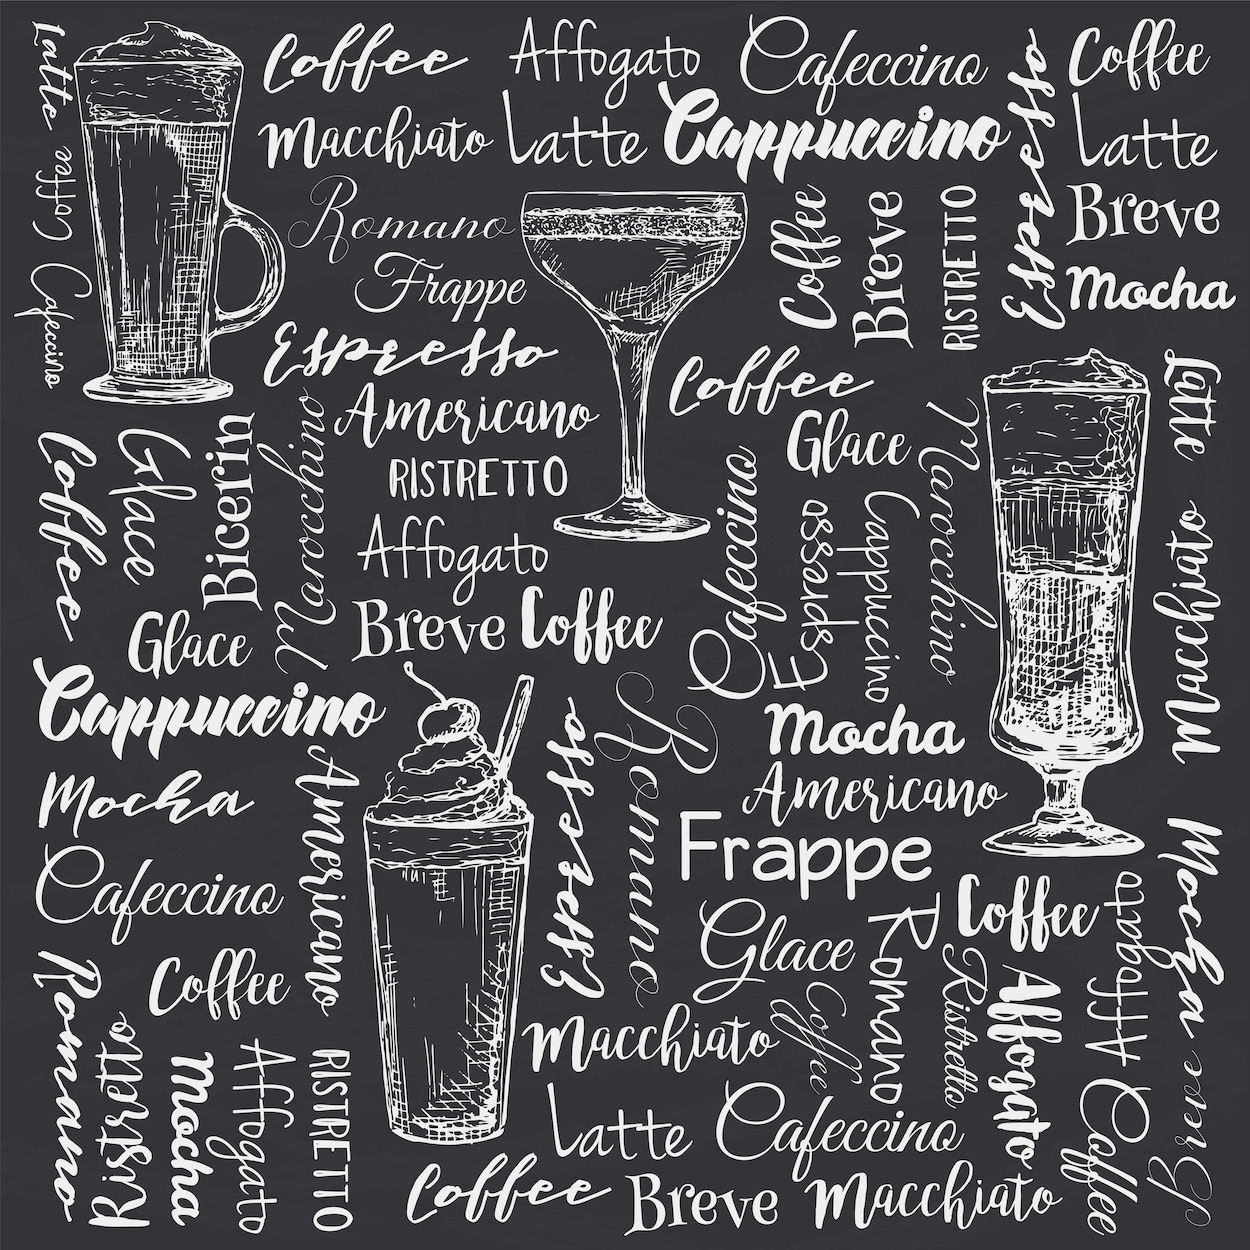 Latte
Coffee
Affogato
Cafeccino
Espresso
Coffee
Macchiato
Latte
Cappuccino
Latte
Coffee
Romano
Coffee
Breve
RISTRETTO
Breve
Cafeccino
Frappe
Mocha
Espresso
Coffee
Latte
Americano
Glace
Marocchino
Coffee
Glace
Bicerin
Marocchino
RISTRETTO
Cafeccino
Espresso
Cappuccino
Macchiato
Affogato
Glace
Breve
Coffee
Cappuccino
Mocha
Americano
Espresso
Romano
Mocha
Americano
Frappe
Mocha
Cafeccino
Coffee
Affogato
Glace
Romano
Romano
Coffee
Ristretto
Affogato
Macchiato
Coffee
Ristretto
Mocha
Affogato
RISTRETTO
Latte
Cafeccino
Coffee
Breve
Coffee
Breve
Macchiato